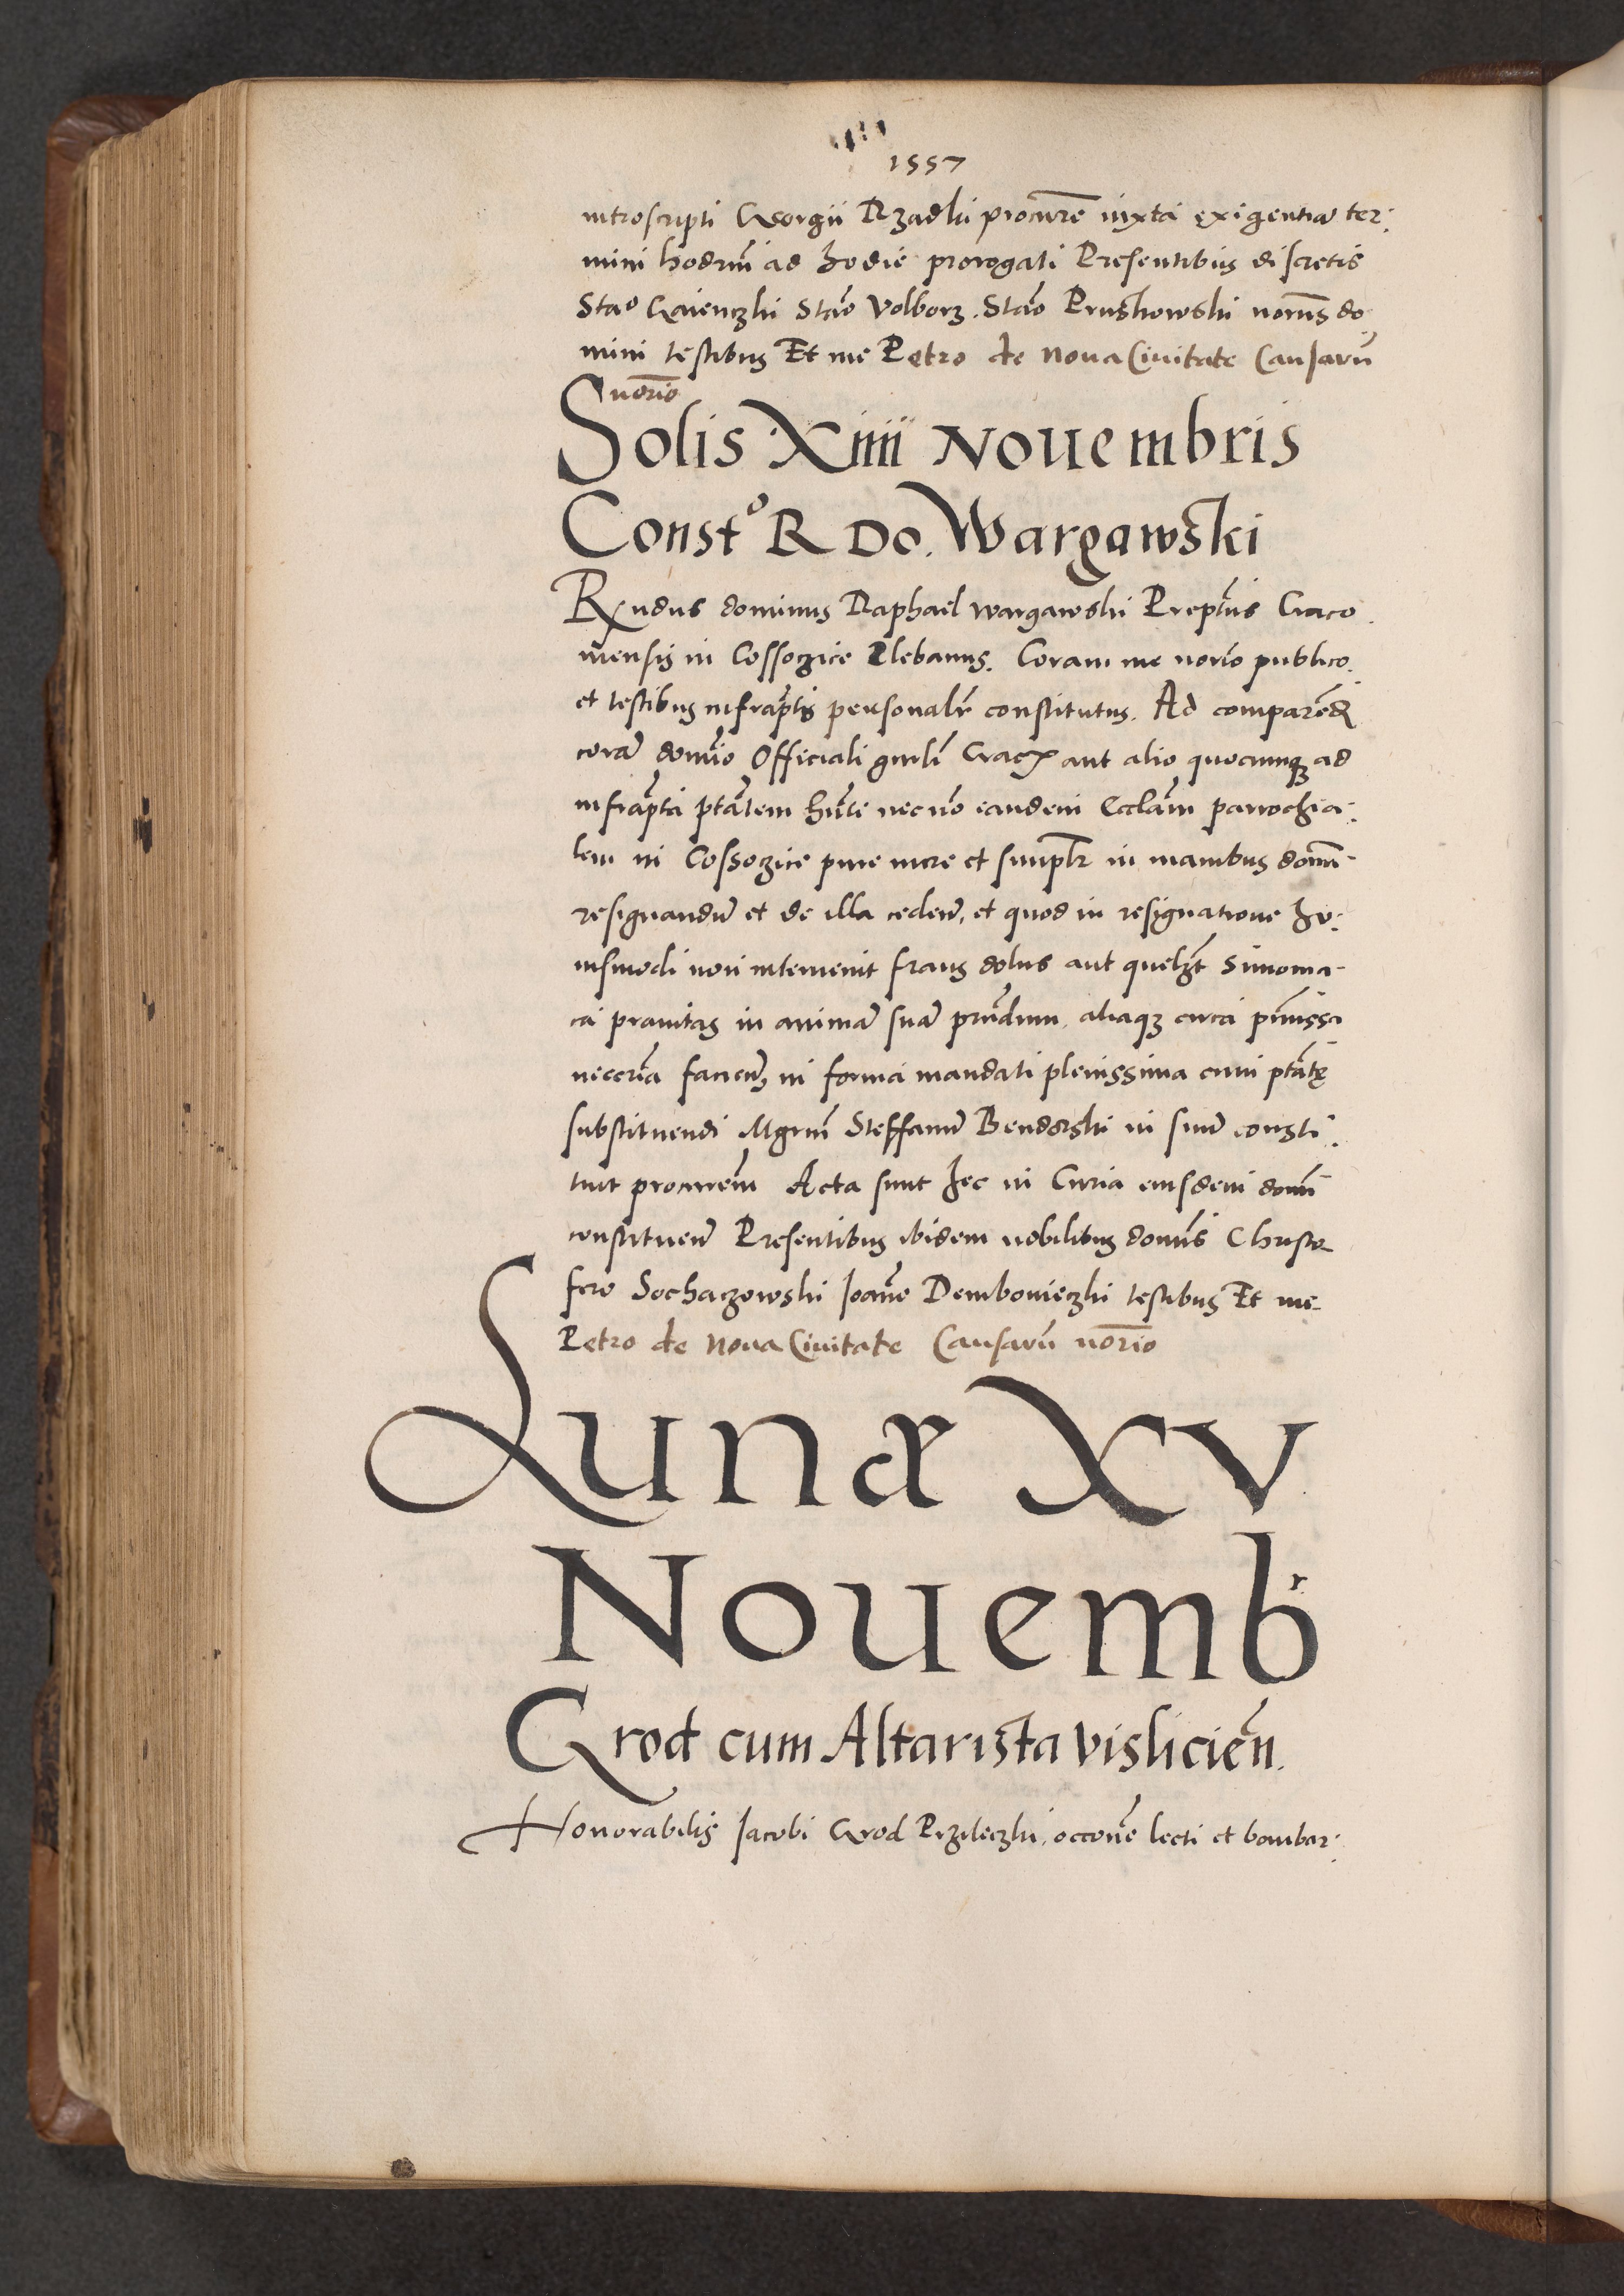 1557
introscripti Georgii Rzadki procurẽ iuxta exigentiã ter:
mini hodrni ad hodie prorogati Presentibus discretis
Stao Gaienczki Stão Volborz. Stão Pruskowski norijs do
mini testibus Et me Petro de Noua Ciuitate Causarũ
norio
Solis Xiiii Nouembris
Constº R Do. Wargawski
Rxndus dominus Raphael Wargawski Preptus Craco
uiensis in Cossoczice Plebanus. Coram me norio publico
et testibus infraptis personalr constitutus. Ad comparẽd
corã domio Officiali gnrli Crac aut alio quocumq ad
infrapta ptatem hnte necnõ eandem Ecclam parrochia:
lem in Cossoczice pure mere et simplr in manibus domi
resignandũ et de illa cedeñ, et quod in resignatione hu:
iusmodi non interuenit fraus dolus aut quelzt simonia-
ca prauitas in animã suã prãdum, aliaq circa pmissa
necceria facieñ, in forma mandati plenissima cum ptate
substituendi Mgrum Steffanũ Bendorski in suũ consti:
tuit procurem Acta sunt hec in Curia eiusdem domi
constitueñ Presentibus ibidem nobilibus domis Christo
fero Sochaczowski Joane Dembonieczki testibus Et me
Petro de Noua Ciuitate Causarũ norio
Lunæ XV
Nouembr
Grod cum Altarista Visliciẽn.
Honorabilis Jacobi Grod Przileczki, occone lecti et bombar: